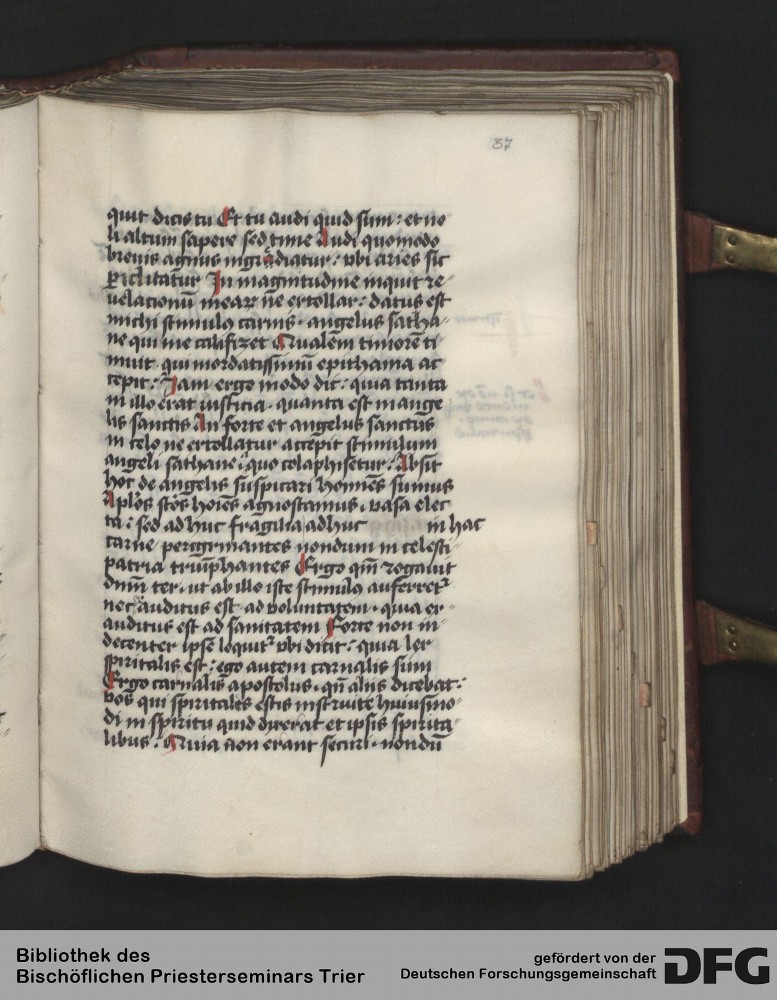 37
quit dicis tu Et tu audi quid sum : et no
li altum sapere sed time Audi quomodo
breuis agnus ingrediatur : vbi aries sic
periclitatur In magnitudine inquit re
uelacionū mearꝝ ne extollar : datus est
michi stimulus carnis · angelus satha
ne qui me colafizet Qualem timorē ti
muit qui mordatissimū epithama ac
cepit : Iam ergo modo dic : quia tanta
in illo erat iusticia · quanta est in ange
lis sanctis An forte et angelus sanctus
in celo ne extollatur accepit stimulum
angeli sathane : quo colaphisetur : Absit
hoc de angelis suspicari homīes sumus
Aplos sctos hoīes agnoscamus · vasa elec
ta : sed adhuc fragilia adhuc in hac
carne peregrinantes nondum in celesti
patria triūphantes Ergo qm̄ rogauit
dnm̄ ter · ut ab illo iste stimulus auferret
nec auditus est ad voluntatem · quia ex
auditus est ad sanitatem Forte non in
decenter ipse loquit vbi dicit : quia lex
spiritalis est : ego autem carnalis sum
Ergo carnalis apostolus · qn̄ aliis dicebat :
vos qui spiritales estis instruite huiusmo
di in spiritu quid dixerat et ipsis spirita
libus : Quia non erant securi · nondū
Bibliothek des
Bischöflichen Priesterseminars Trier
gefördert von der
Deutschen Forschungsgemeinschaft
DFG